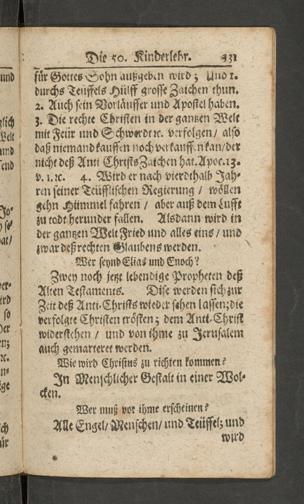 Die 50. Kinderlehr. 431
für Gottes Sohn außgeben wird; Und 1.
durchs Teuffels Hülff grosse Zaichen thun.
2. Auch sein Vorläuffer und Apostel haben.
3. Die rechte Christen in der gantzen Welt
mit Feür und Schwerdt ꝛc. verfolgen/ also
daß niemand kauffen noch verkauffen kan/der
nicht deß Anti Christs Zaichen hat. Apoc. 13.
v. 1. ꝛc. 4. Wird er nach vierdthalb Jah-
ren seiner Teüfflischen Regierung/ wöllen
gehn Himmel fahren/ aber auß dem Lufft
zu todt herunder fallen. Alsdann wird in
der gantzen Welt Fried und alles eins/ und
zwar deß rechten Glaubens werden.
Wer seynd Elias und Enoch?
Zwey noch jetzt lebendige Propheten deß
Alten Testaments. Dise werden sich zur
Zeit deß Anti-Christs wieder sehen lassen; die
verfolgte Christen trösten; dem Anti-Christ
widerstehen/ und von ihme zu Jerusalem
auch gemarteret werden.
Wie wird Christus zu richten kommen?
In Menschlicher Gestalt in einer Wol-
cken.
Wer muß vor ihme erscheinen?
Alle Engel/ Menschen/ und Teüffel; und
wird